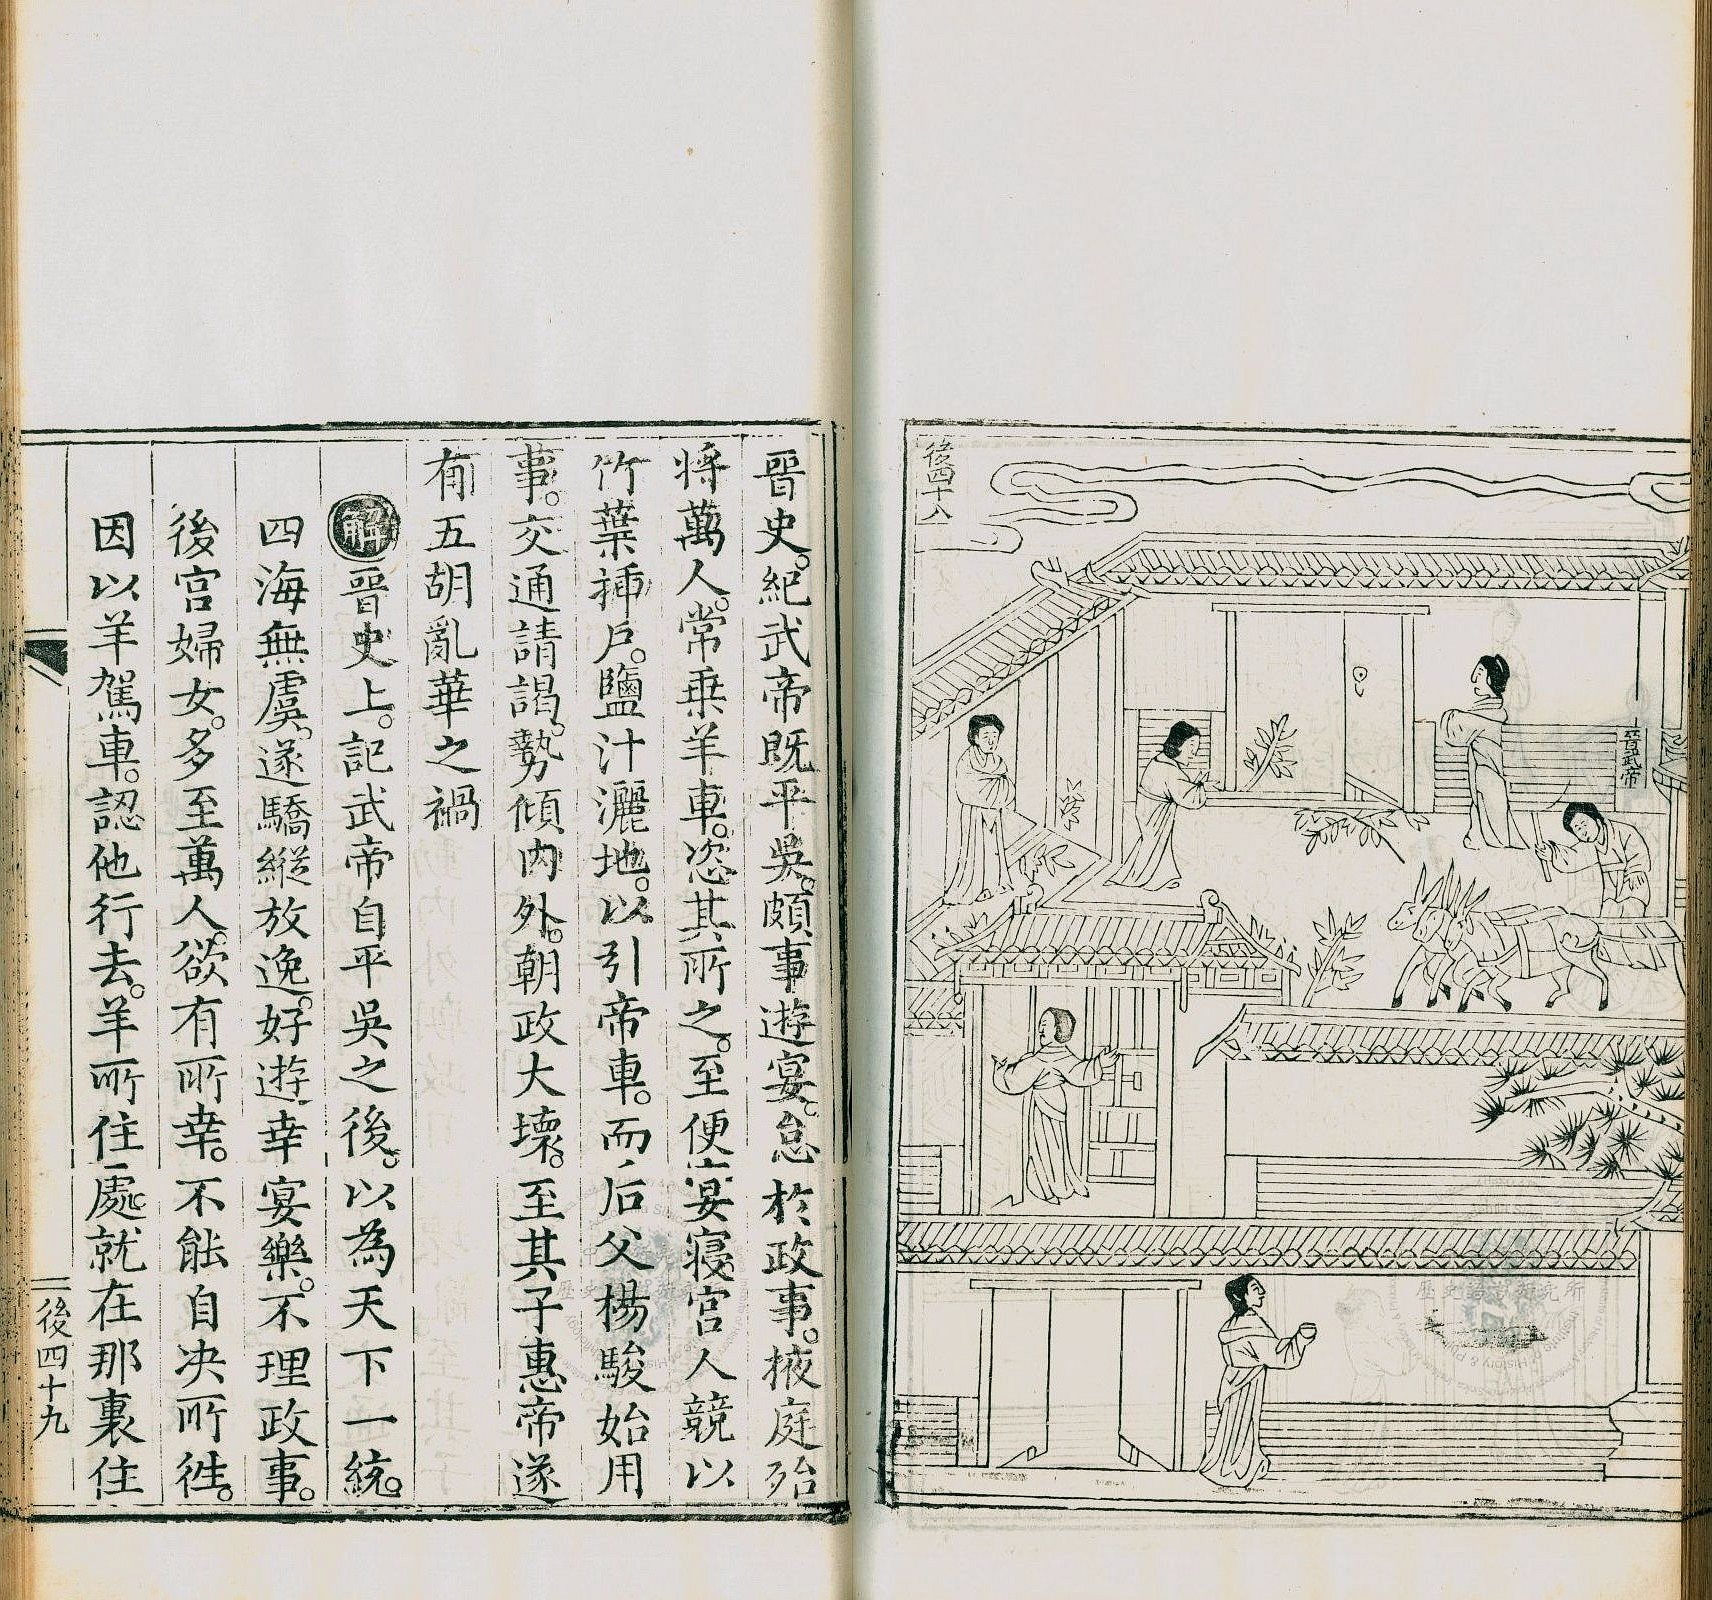 後四十八
晉武帝
晉史。紀武帝既平吳。頗事遊宴。怠於政事。掖庭殆
將萬人。常乗羊車。恣其所之。至便宴寢。宮人競以
竹葉挿戶。鹽汁灑地。以引帝車。而后父楊駿始用
事。交通請謁。勢傾內外。朝政大壞。至其子惠帝遂
有五胡亂華之禍
解晉史上。記武帝自平吳之後。以為天下一統。
四海無虞。遂驕縱放逸。好遊幸宴樂。不理政事。
後宮婦女。多至萬人。欲有所幸。不能自决所徃。
因以羊駕車。認他行去。羊所住處。就在那裏住
後四十九
歷史語言研究所